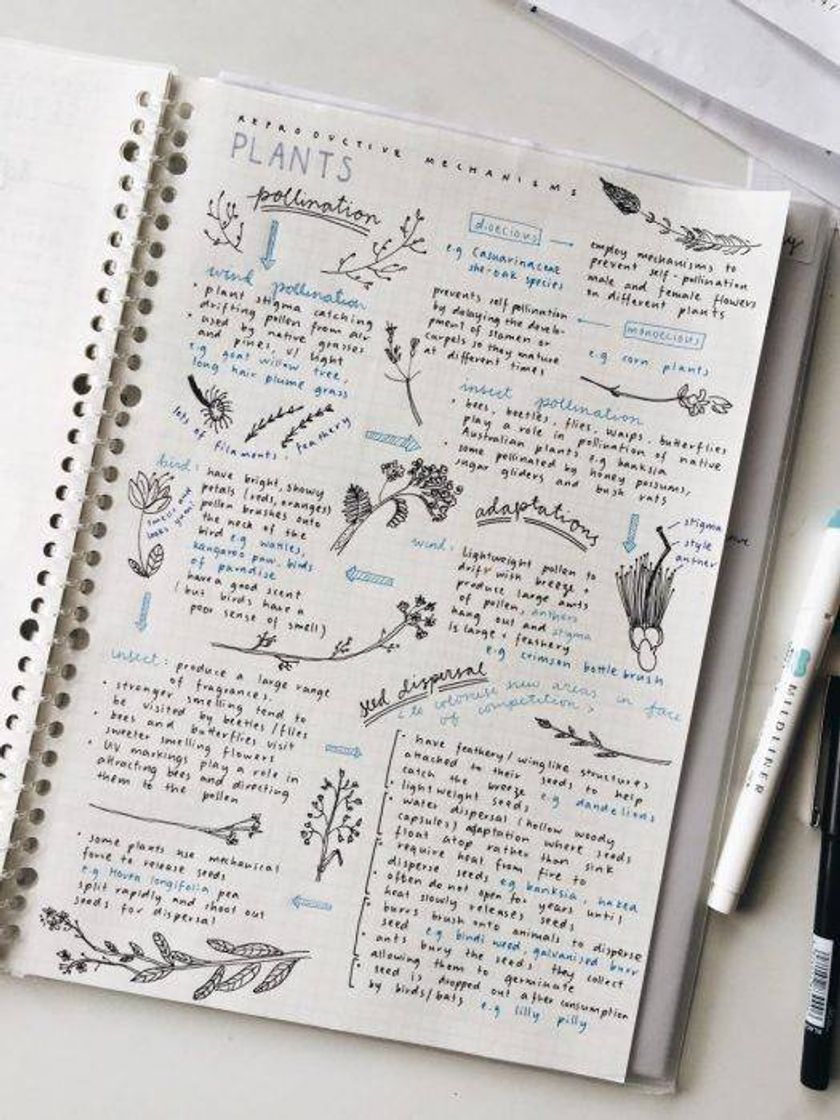 REPRODUCTIVE MECHANISMS
PLANTS
pollination
wind pollination
• plant stigma catching
drifting pollen from air
• used by native grasses
and pines, w/ light
e.g goat willow tree,
long hair plume grass
lots of filaments, feathery
dioecious
e.g Casuarinaceae
she-oak species
employ mechanisms to
prevent self-pollination
male and female flowers
on different plants
prevents self pollination
by delaying the develo-
pment of stamen or
carpels so they mature
at different times
monoecious
e.g corn plants
insect pollination
• bees, beetles, flies, wasps, butterflies
play a role in pollination of native
Australian plants e.g banksia
• some pollinated by honey possums,
sugar gliders and bush rats
bird: have bright, showy
petals (reds, oranges)
pollen brushes onto
the neck of the
bird e.g wattles,
kangaroo paw, birds
of paradise
have a good scent
(but birds have a
poor sense of smell)
smells and
looks yum!
adaptations
wind: lightweight pollen to
drift with breeze +
produce large amts
of pollen, anthers
hang out and stigma
is large + feathery
e.g crimson bottle brush
stigma
style
anther
insect: produce a large range
of fragrances.
• stronger smelling tend to
be visited by beetles/flies
• bees and butterflies visit
sweeter smelling flowers
• UV markings play a role in
attracting bees and directing
them to the pollen
seed dispersal
< to colonise new areas in face
of competition >
• have feathery/winglike structures
attached to their seeds to help
catch the breeze e.g dandelions
• lightweight seeds
• water dispersal (hollow woody
capsules) adaptation where seeds
float atop rather than sink
• require heat from fire to
disperse seeds eg banksia, haked
• often do not open for years until
heat slowly releases seeds
• burrs brush onto animals to disperse
seed e.g bindi weed, galvanised burr
• ants bury the seeds they collect
allowing them to germinate
• seed is dropped out after consumption
by birds/bats e.g lilly pilly
• some plants use mechanical
force to release seeds
e.g Hovea longifolia pea
split rapidly and shoot out
seeds for dispersal
MILDLINER